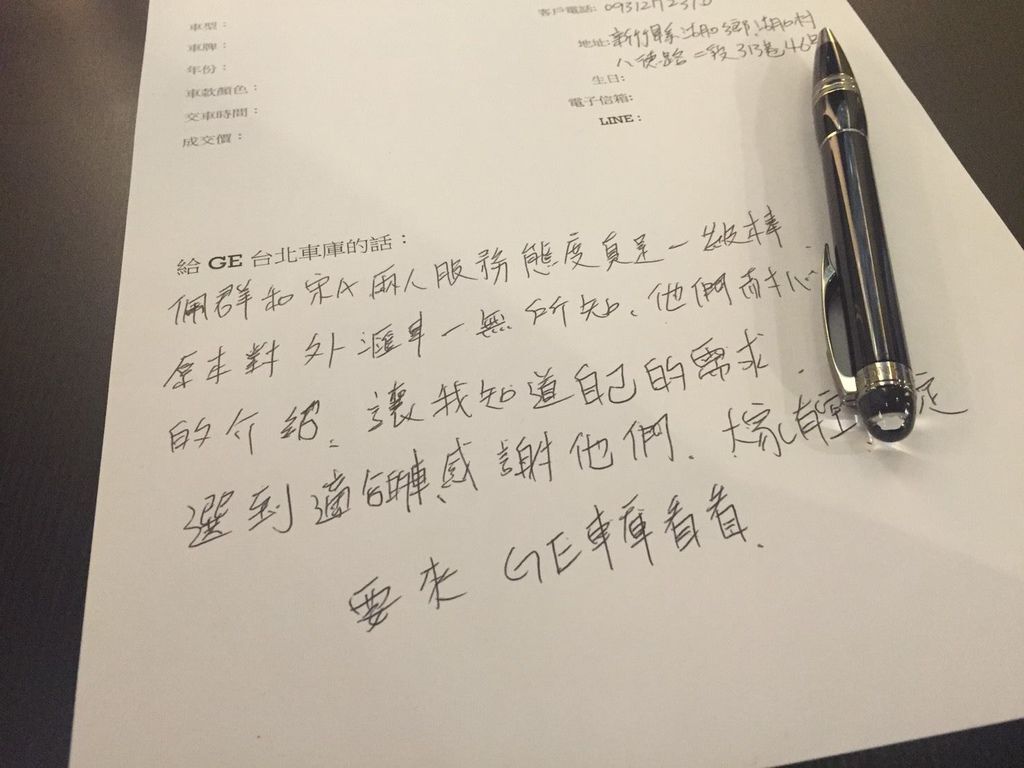 車型：
車牌：
年份：
車款顏色：
交車時間：
成交價：
客戶電話:
地址: 新竹縣湖口鄉湖口村
八德路二段313巷46
生日:
電子信箱:
LINE：
給 GE 台北車庫的話：
佩群和宋A兩人服務態度真是一級棒.
原本對外匯車一無所知. 他們耐心
的介紹. 讓我知道自己的需求.
選到適合的車感謝他們. 大家有空一定
要來 GE車庫看看.